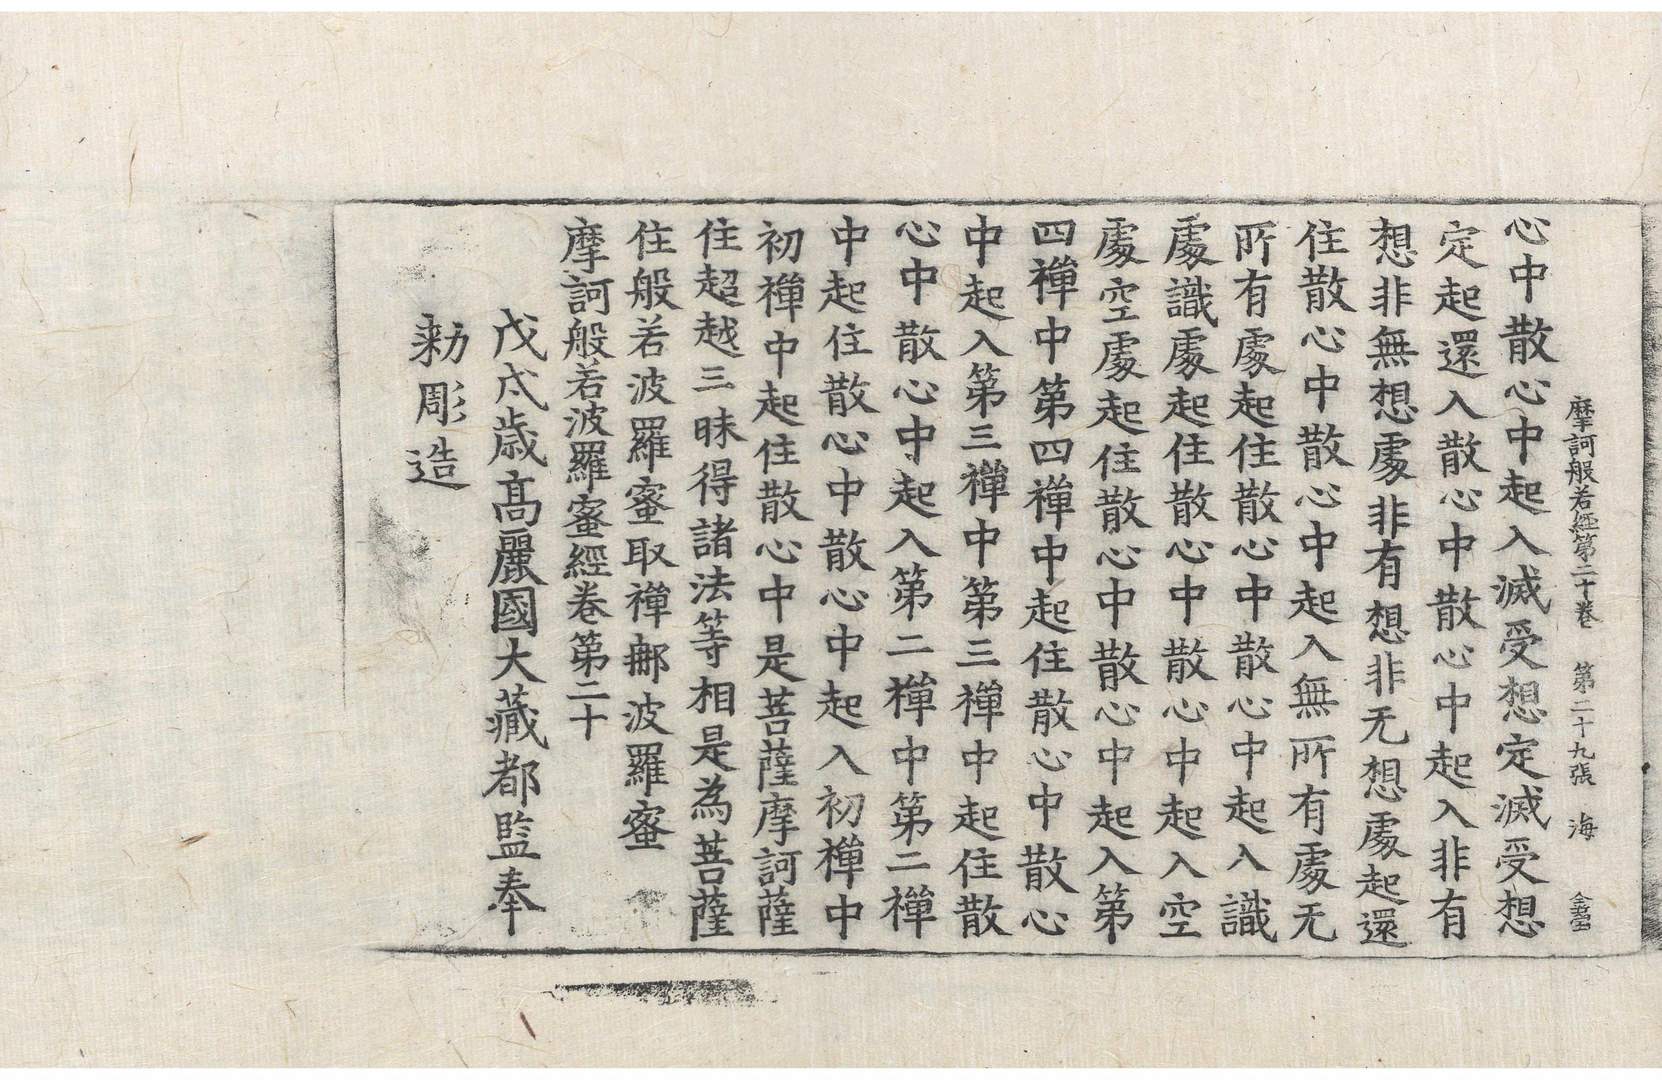 摩訶般若經第二十卷 第二十九張 海
心中散心中起入滅受想定滅受想
定起還入散心中散心中起入非有
想非無想處非有想非无想處起還
住散心中散心中起入無所有處无
所有處起住散心中散心中起入識
處識處起住散心中散心中起入空
處空處起住散心中散心中起入第
四禪中第四禪中起住散心中散心
中起入第三禪中第三禪中起住散
心中散心中起入第二禪中第二禪
中起住散心中散心中起入初禪中
初禪中起住散心中是菩薩摩訶薩
住超越三昧得諸法等相是為菩薩
住般若波羅蜜取禪郍波羅蜜
摩訶般若波羅蜜經卷第二十
戊戌歳髙麗國大藏都監奉
勑彫造